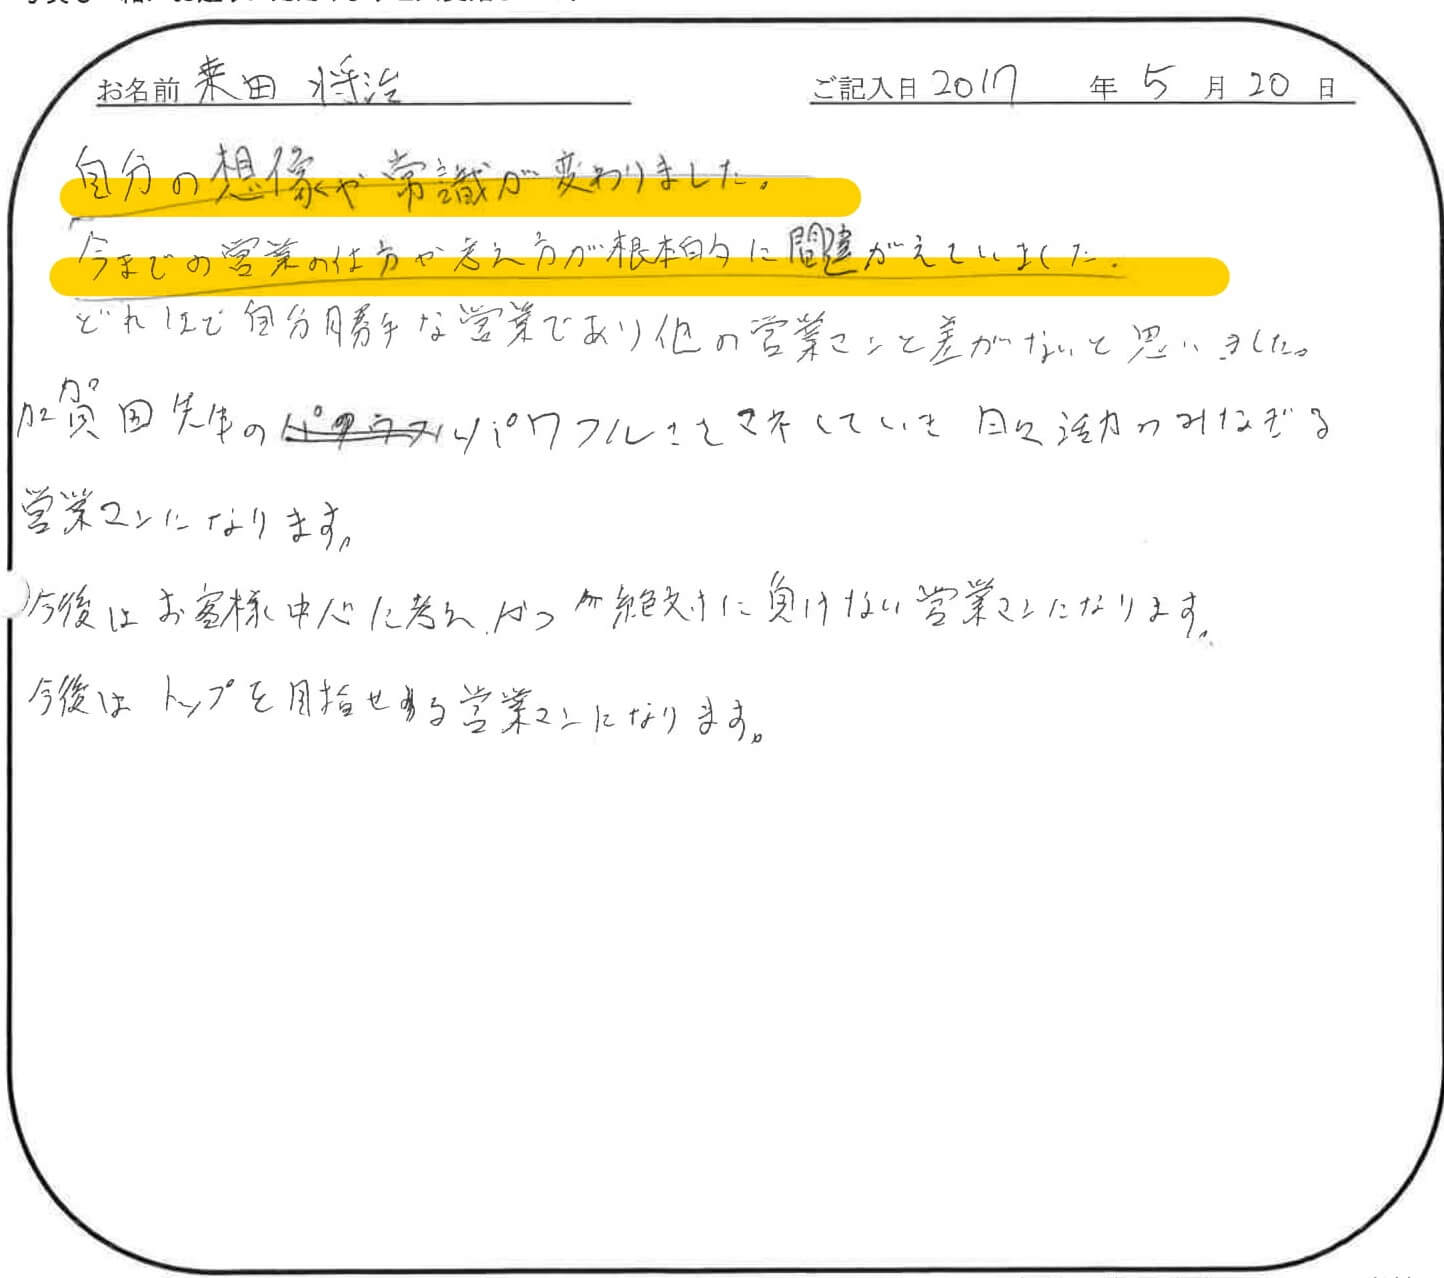 お名前 来田 将治 ご記入日 2017 年 5 月 20 日
自分の想像や常識が変わりました。
今までの営業の仕方や考え方が根本的に間違がえていました。
どれほど自分勝手な営業であり他の営業マンと差がないと思いました。
加賀田先生のパワフルさをマネしていき 日々活力のみなぎる
営業マンになります。
今後はお客様中心に考え、かつ絶対に負けない営業マンになります。
今後はトップを目指せる営業マンになります。